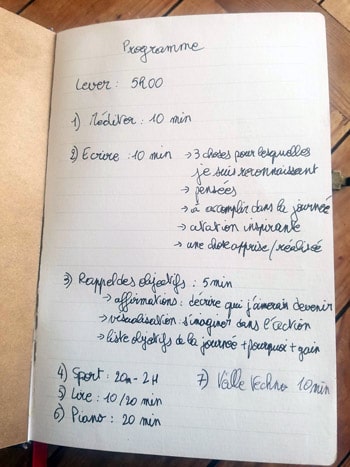 Programme
Lever : 5h00
1) Méditer : 10 min
2) Ecrire : 10 min → 3 choses pour lesquelles
je suis reconnaissant
→ pensées
→ à accomplir dans la journée
→ citation inspirante
→ une chose apprise/réalisée
3) Rappel des objectifs : 5 min
→ affirmations : décrire qui j'aimerai devenir
→ visualisation : s'imaginer dans l'action
→ liste objectifs de la journée + pourquoi + gain
4) Sport : 20m - 2H
7) Veille techno 10min
5) Lire : 10/20 min
6) Piano : 20 min